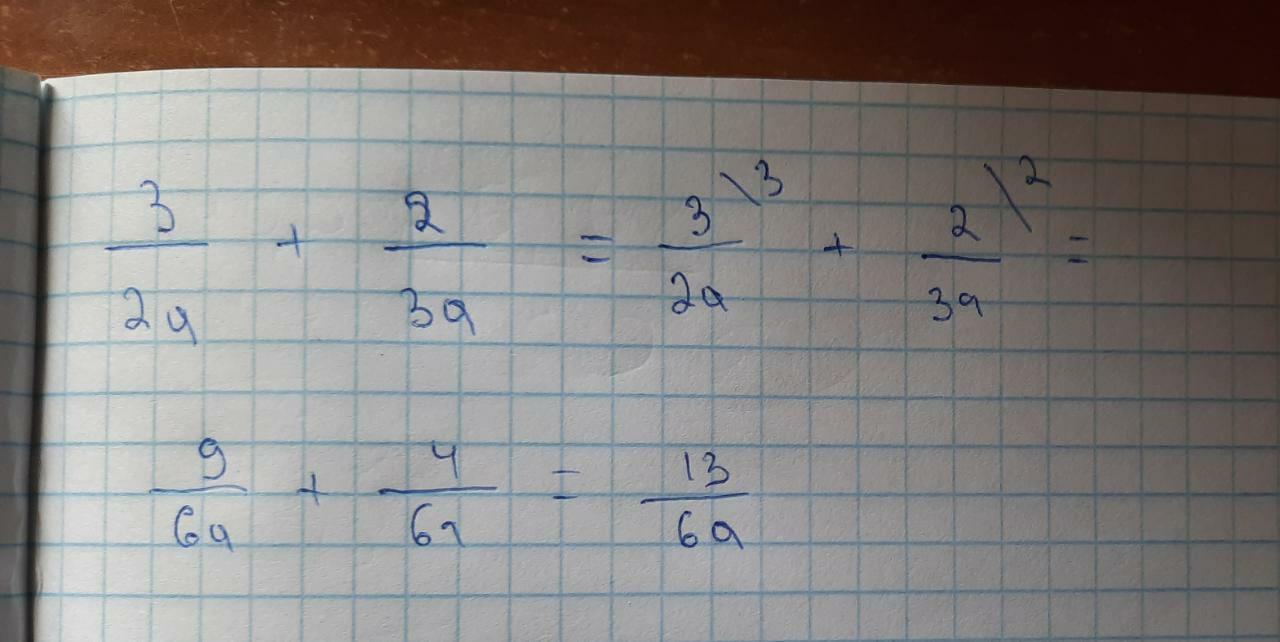 3/2a + 2/3a = 3\3/2a + 2\2/3a =
9/6a + 4/6a = 13/6a